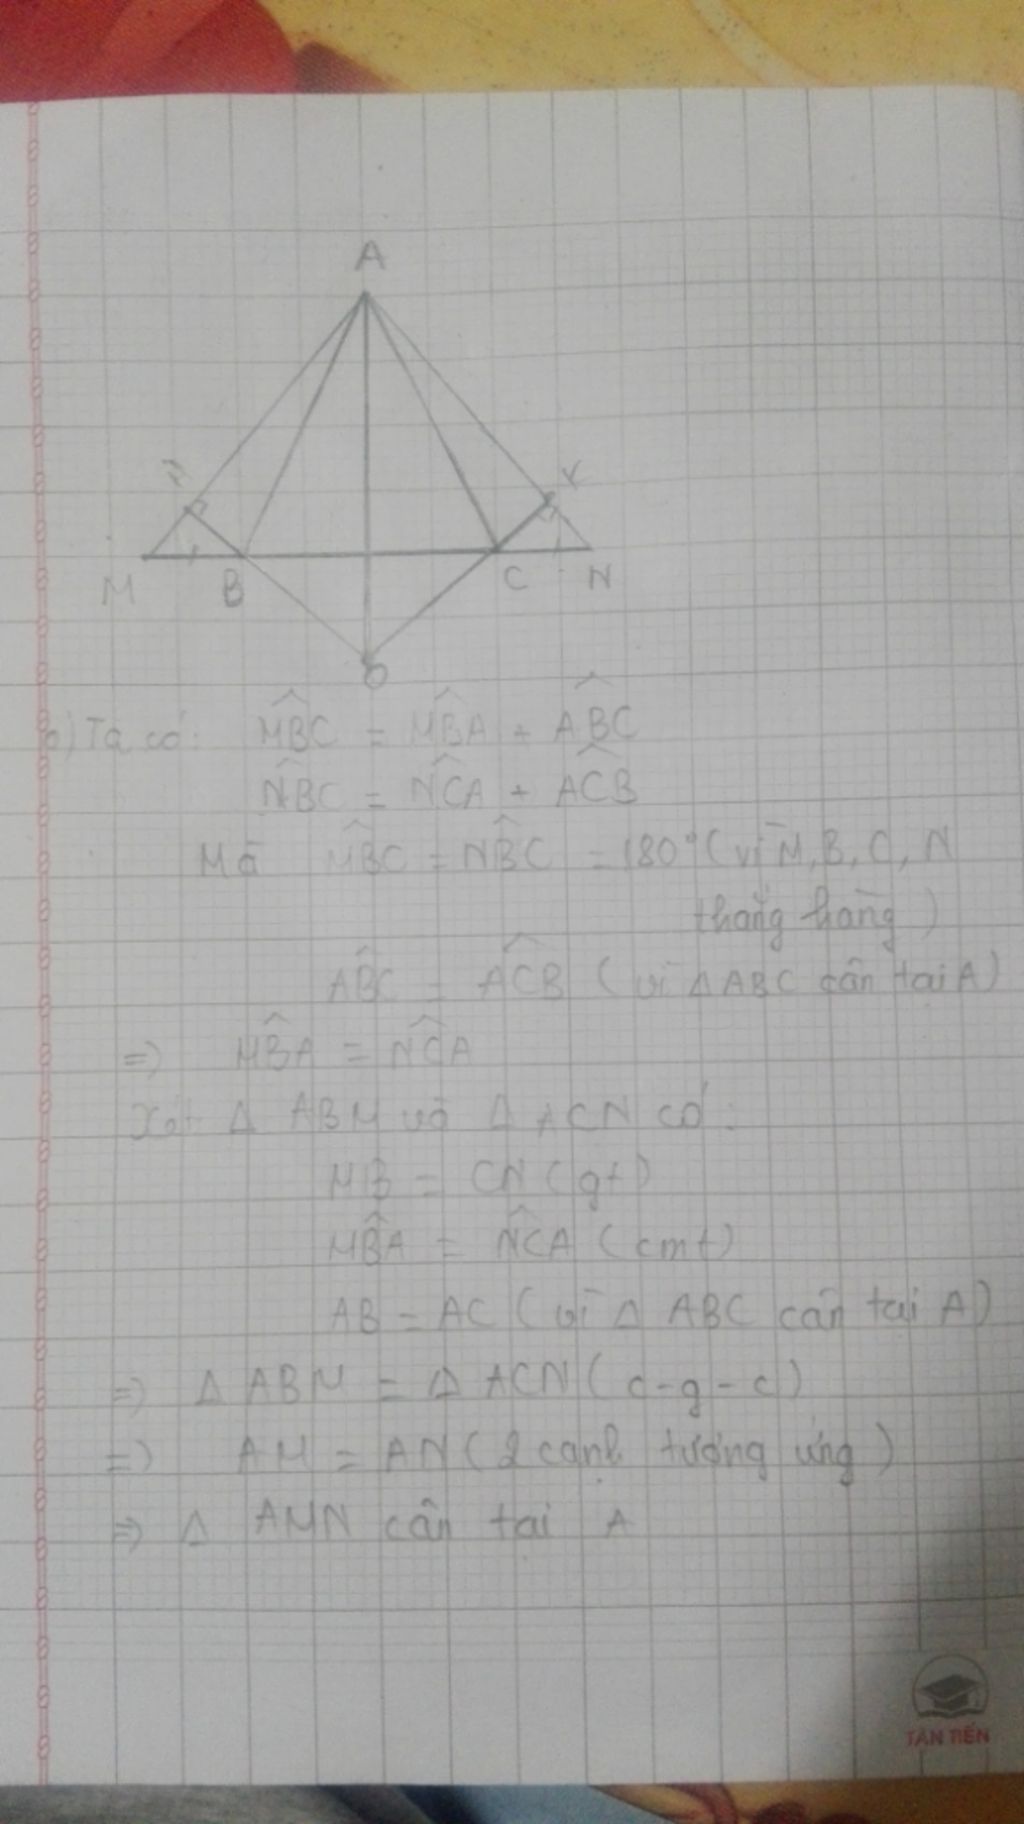 A
K
M
B
C
N
O
b) Ta có: MBC = MBA + ABC
NBC = NCA + ACB
Mà MBC = NBC = 180° (vì M, B, C, N
thẳng hàng)
ABC = ACB (vì Δ ABC cân tại A)
=> MBA = NCA
Xét Δ ABM và Δ ACN có:
MB = CN (gt)
MBA = NCA (cmt)
AB = AC (vì Δ ABC cân tại A)
=> Δ ABM = Δ ACN (c-g-c)
=> AM = AN (2 cạnh tương ứng)
=> Δ AMN cân tại A
TÂN TIẾN